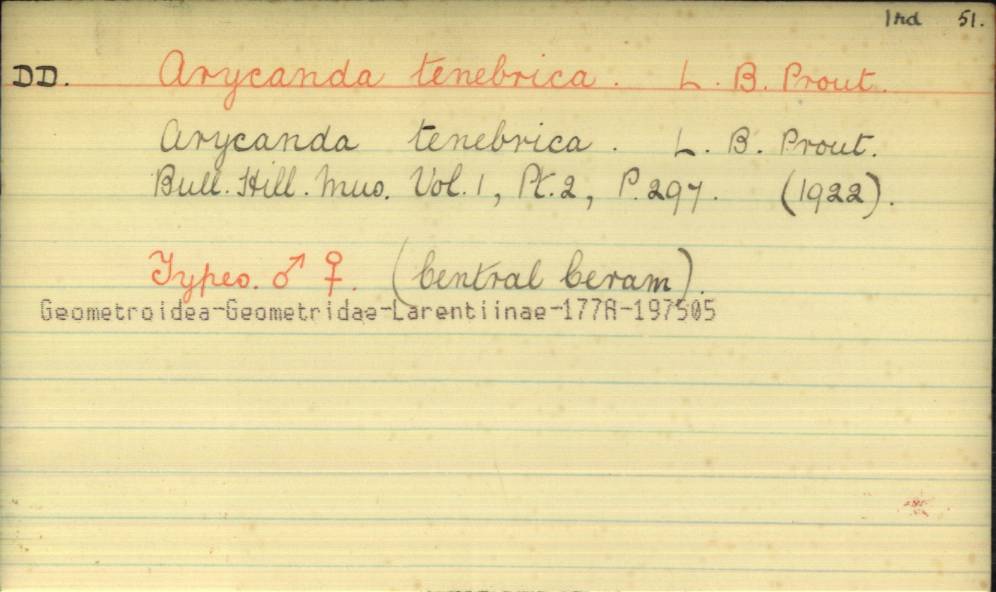 Ind 51.
DD. Arycanda tenebrica. L. B. Prout.
Arycanda tenebrica. L. B. Prout.
Bull. Hill. Mus. Vol. 1, Pt. 2, P. 297. (1922).
Types. ♂ ♀. (Central Ceram).
Geometroidea-Geometridae-Larentiinae-177A-197505